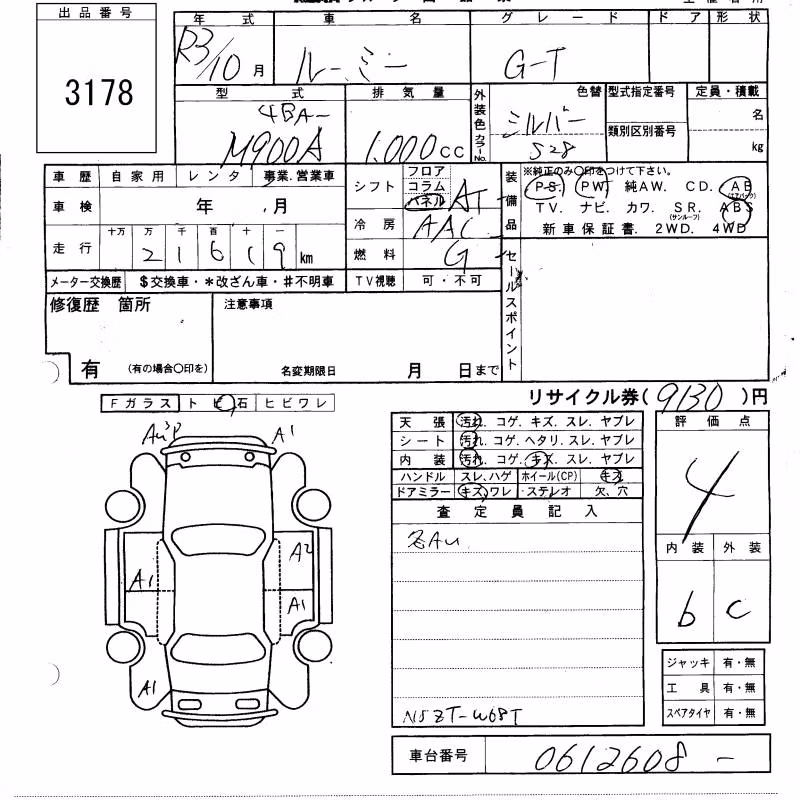 出品番号
3178
年式 車名 グレード ドア 形状
R3/10月 ルーミー G-T
型式 排気量 外装色 カラーNo. 色替 型式指定番号 定員・積載
4BA- シルバー 名
M900A 1.000cc S28 類別区別番号 kg
車歴 自家用 レンタ 事業.営業車
シフト フロア コラム パネル AT
装備品 ※純正のみ○印をつけて下さい。
PS. PW. 純AW. CD. AB(エアバック)
TV. ナビ. カワ. SR.(サンルーフ) ABS
新車保証書. 2WD. 4WD
車検 年 月
冷房 AAC
走行 十万 万 千 百 十 一
21619 km
燃料 G
メーター交換歴 $交換車・*改ざん車・#不明車 TV視聴 可・不可
セールスポイント
修復歴 箇所 注意事項
有 (有の場合○印を) 名変期限日 月 日まで
リサイクル券(9130)円
Fガラス トビ石 ヒビワレ
A1
天張 汚れ. コゲ. キズ. スレ. ヤブレ
シート 汚れ. コゲ. ヘタリ. スレ. ヤブレ
内装 汚れ. コゲ. キズ. スレ. ヤブレ
ハンドル スレ.ハゲ ホイール(CP) キズ
ドアミラー キズ.ワレ ステレオ 欠、穴
評価点
4
査定員記入
各AU
A2
A1
A1
A1
NSZT-W68T
内装 外装
b c
ジャッキ 有・無
工具 有・無
スペアタイヤ 有・無
車台番号 0612608 -